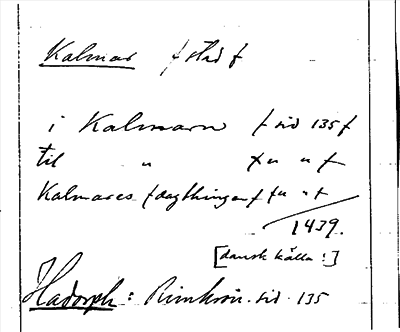 Kalmar / stad /
i Kalmarn / sid 135 /
til " / " " /
Kalmares / dagthingan / / " " /
1439.
[dansk källa!]
Hadorph: Rimkrön. sid. 135